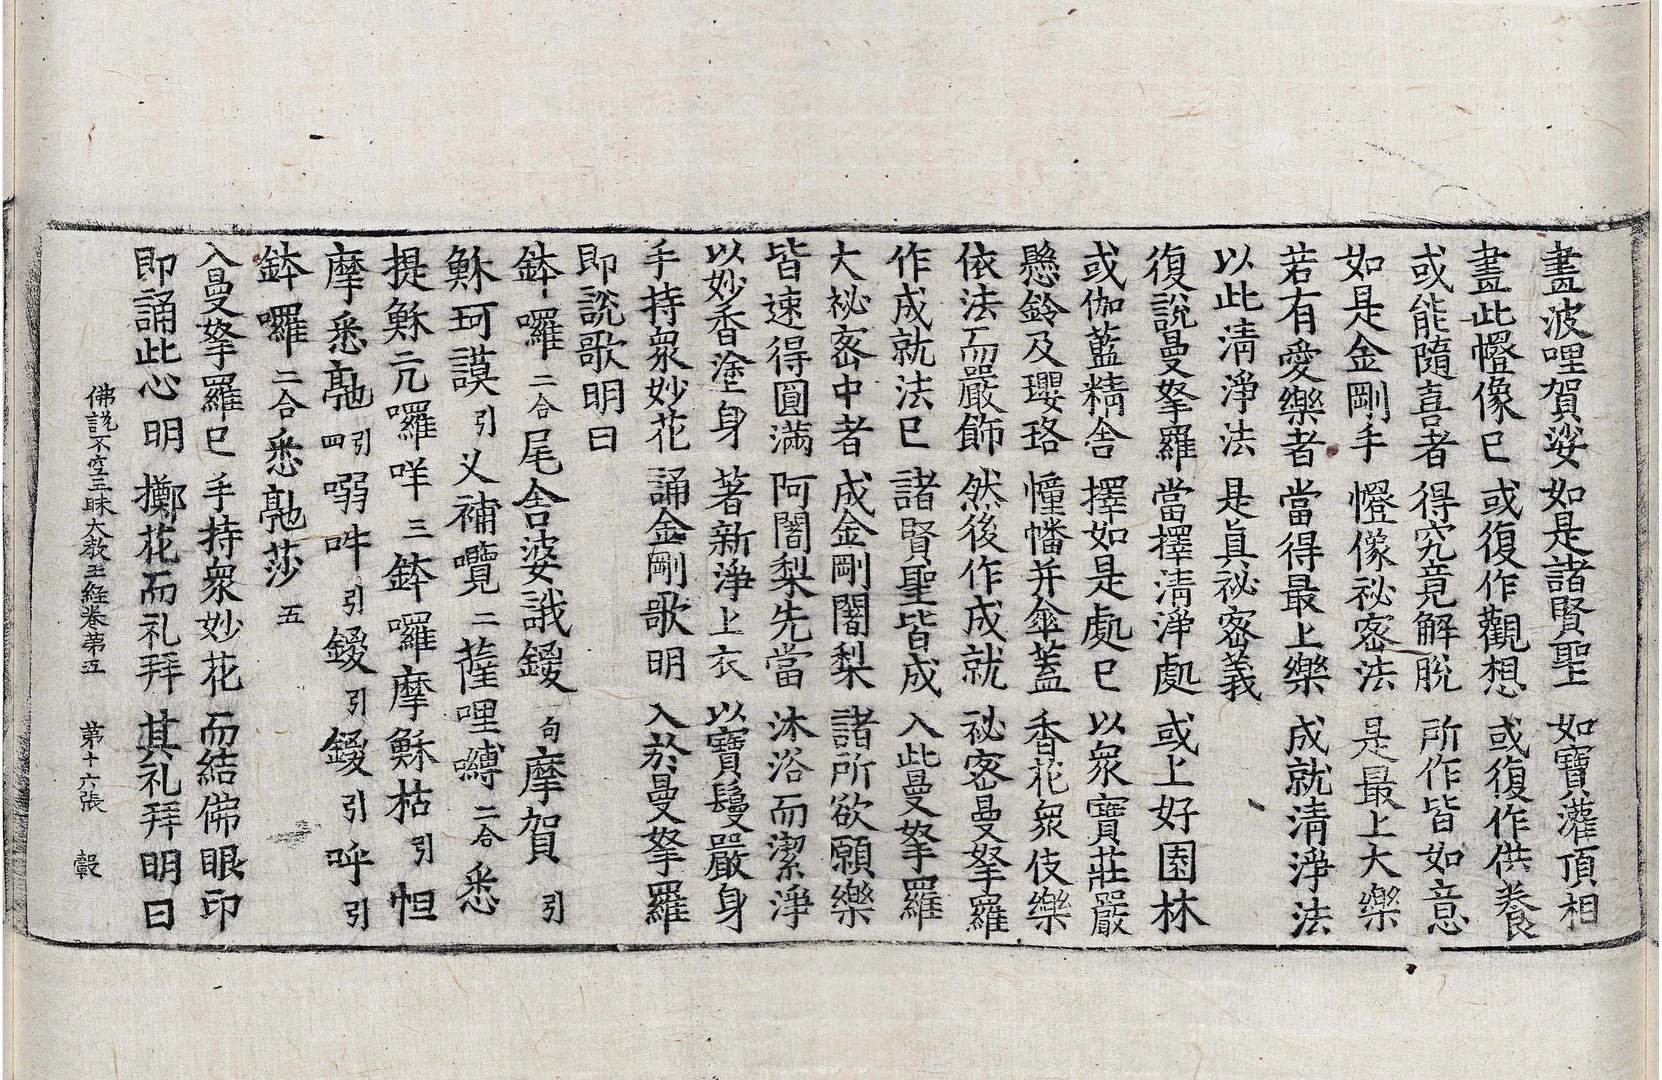 畫波哩賀娑 如是諸賢聖 如寶灌頂相
畫此㡧像已 或復作觀想 或復作供養
或能隨喜者 得究竟解脫 所作皆如意
如是金剛手 㡧像祕密法 是最上大樂
若有愛樂者 當得最上樂 成就清淨法
以此清淨法 是眞祕密義
復說曼拏羅 當擇清淨處 或上好園林
或伽藍精舍 擇如是處已 以衆寶莊嚴
懸鈴及瓔珞 幢幡并傘蓋 香花衆伎樂
依法而嚴飾 然後作成就 祕密曼拏羅
作成就法已 諸賢聖皆成 入此曼拏羅
大祕密中者 成金剛闍梨 諸所欲願樂
皆速得圓滿 阿闍梨先當 沐浴而潔淨
以妙香塗身 著新淨上衣 以寶鬘嚴身
手持衆妙花 誦金剛歌明 入於曼拏羅
即說歌明曰
鉢囉二合尾舍婆誐鑁句摩賀引
穌珂謨引乂補囕二薩哩嚩二合悉
提穌元囉咩三鉢囉摩穌枯引怛
摩悉䖏四引嗠吽引鑁引鑁引呼引
鉢囉二合悉䖏莎五
入曼拏羅已 手持衆妙花 而結佛眼印
即誦此心明 擲花而礼拜 其礼拜明曰
佛說不空三昧大教王経卷第五 第十六張 轂